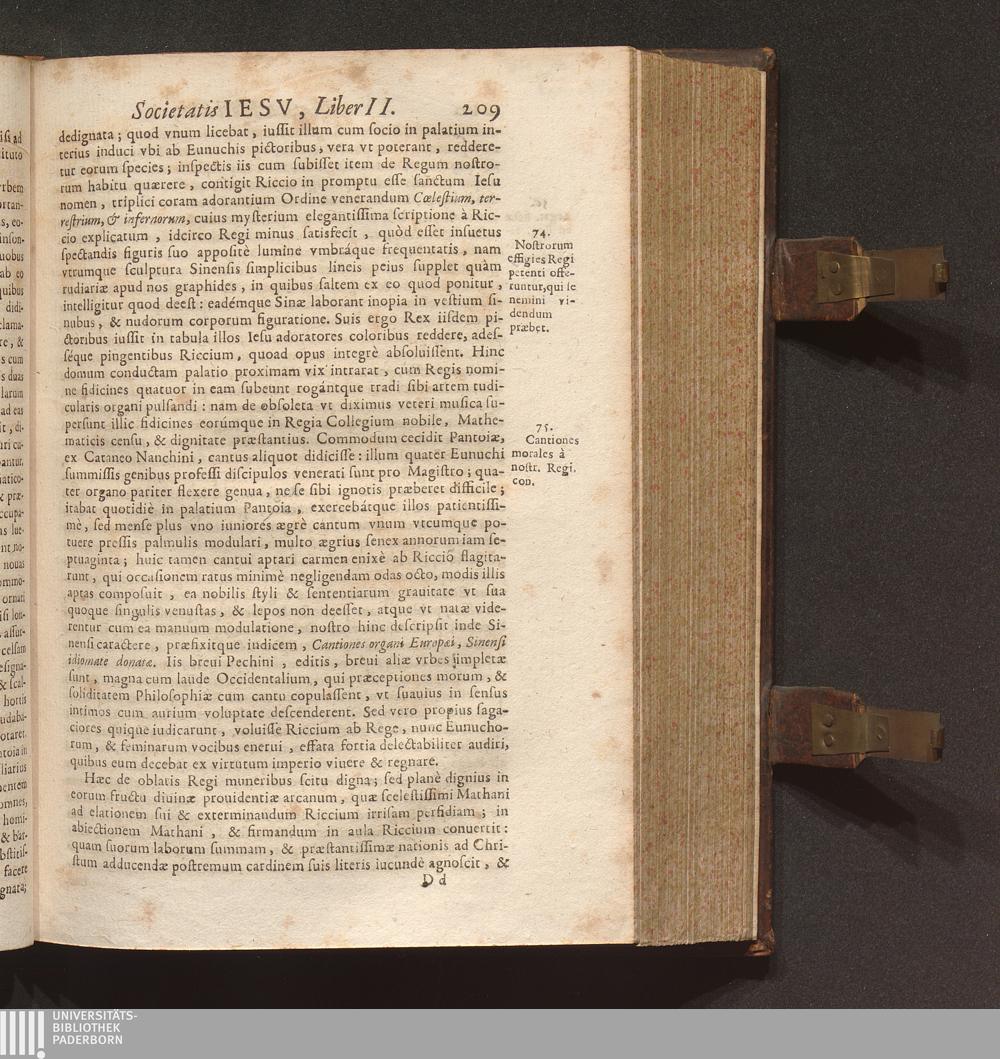 Societatis IESV, Liber II. 209
dedignata; quod vnum licebat, iussit illum cum socio in palatium in-
terius induci vbi ab Eunuchis pictoribus, vera vt poterant, reddere-
tur eorum species; inspectis iis cum subisset item de Regum nostro-
rum habitu quærere, contigit Riccio in promptu esse sanctum Iesu
nomen, triplici coram adorantium Ordine venerandum Cœlestium, ter-
restrium, & infernorum, cuius mysterium elegantissima scriptione à Ric-
cio explicatum, idcirco Regi minus satisfecit, quòd esset insuetus
spectandis figuris suo appositè lumine vmbráque frequentatis, nam
vtrumque sculptura Sinensis simplicibus lineis peius supplet quàm
rudiariæ apud nos graphides, in quibus saltem ex eo quod ponitur,
intelligitur quod deest: eadémque Sinæ laborant inopia in vestium si-
nubus, & nudorum corporum figuratione. Suis ergo Rex iisdem pi-
ctoribus iussit in tabula illos Iesu adoratores coloribus reddere, ades-
séque pingentibus Riccium, quoad opus integrè absoluissent. Hinc
domum conductam palatio proximam vix intrarat, cum Regis nomi-
ne fidicines quatuor in eam subeunt rogántque tradi sibi artem tudi-
cularis organi pulsandi: nam de obsoleta vt diximus veteri musica su-
persunt illic fidicines eorúmque in Regia Collegium nobile, Mathe-
maticis censu, & dignitate præstantius. Commodum cecidit Pantoiæ,
ex Cataneo Nanchini, cantus aliquot didicisse: illum quater Eunuchi
summissis genibus professi discipulos venerati sunt pro Magistro; qua-
ter organo pariter flexere genua, ne se sibi ignotis præberet difficile;
itabat quotidiè in palatium Pantoia, exercebátque illos patientissi-
mè, sed mense plus vno iuniores ægrè cantum vnum vtcumque po-
tuere pressis palmulis modulari, multo ægrius senex annorum iam se-
ptuaginta; huic tamen cantui aptari carmen enixè ab Riccio flagita-
runt, qui occasionem ratus minimè negligendam odas octo, modis illis
aptas composuit, ea nobilis styli & sententiarum grauitate vt sua
quoque singulis venustas, & lepos non deesset, atque vt natæ vide-
rentur cum ea manuum modulatione, nostro hinc descripsit inde Si-
nensi caractere, præfixitque iudicem, Cantiones organi Europæi, Sinensi
idiomate donatæ. Iis breui Pechini, editis, breui aliæ vrbes impletæ
sunt, magna cum laude Occidentalium, qui præceptiones morum, &
soliditatem Philosophiæ cum cantu copulassent, vt suauius in sensus
intimos cum aurium voluptate descenderent. Sed vero propius saga-
ciores quique iudicarunt, voluisse Riccium ab Rege, nunc Eunucho-
rum, & feminarum vocibus enerui, effata fortia delectabiliter audiri,
quibus eum decebat ex virtutum imperio viuere & regnare.
Hæc de oblatis Regi muneribus scitu digna; sed planè dignius in
eorum fructu diuinæ prouidentiæ arcanum, quæ scelestissimi Mathani
ad elationem sui & exterminandum Riccium irrisam perfidiam; in
abiectionem Mathani, & firmandum in aula Riccium conuertit:
quam suorum laborum summam, & præstantissimæ nationis ad Chri-
stum adducendæ postremum cardinem suis literis iucundè agnoscit, &
D d
74.
Nostrorum
effigies Regi
petenti offe-
runtur, qui se
nemini vi-
dendum
præbet.
75.
Cantiones
morales à
nostr. Regi.
con.
UNIVERSITÄTS-
BIBLIOTHEK
PADERBORN